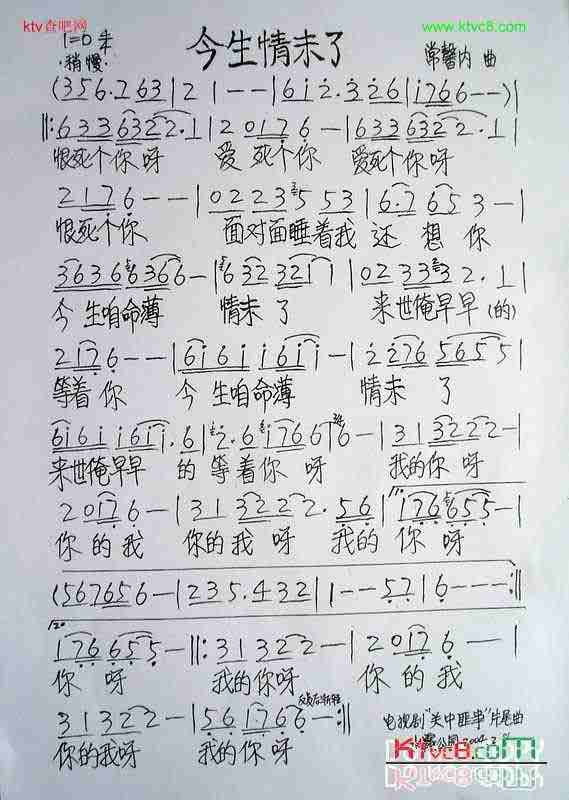 ktv查吧网
www.ktvc8.com
今生情未了
1=D 4/4
·稍慢·
常馨内 曲
(356·763|2|--|612·326|1766--)|
‖:6336322·1|20176-|6336322·1|
恨死个你呀 爱死个你 爱死个你呀
2176--|02235 53|6·7653-|
恨死个你 面对面睡着我 还想你
36366366-|6323211|0223332·1|
今生咱命薄 情未了 来世俺早早(的)
2176--|61611611-|2276565 5|
等着你 今生咱命薄 情未了
61611611·6|2·617666-|313222-|
来世俺早早的等着你呀 我的你呀
20176-|313222·56|176655-|
你的我 你的我呀 我的你呀
(567656-|235·432|1--57|6---:‖
176655-‖:31322-|20176--|
你呀 我的你呀 你的我
31322-|561766-:‖
反复后渐轻
你的我呀 我的你呀
电视剧"关中匪事"片尾曲
Ktvc8.com